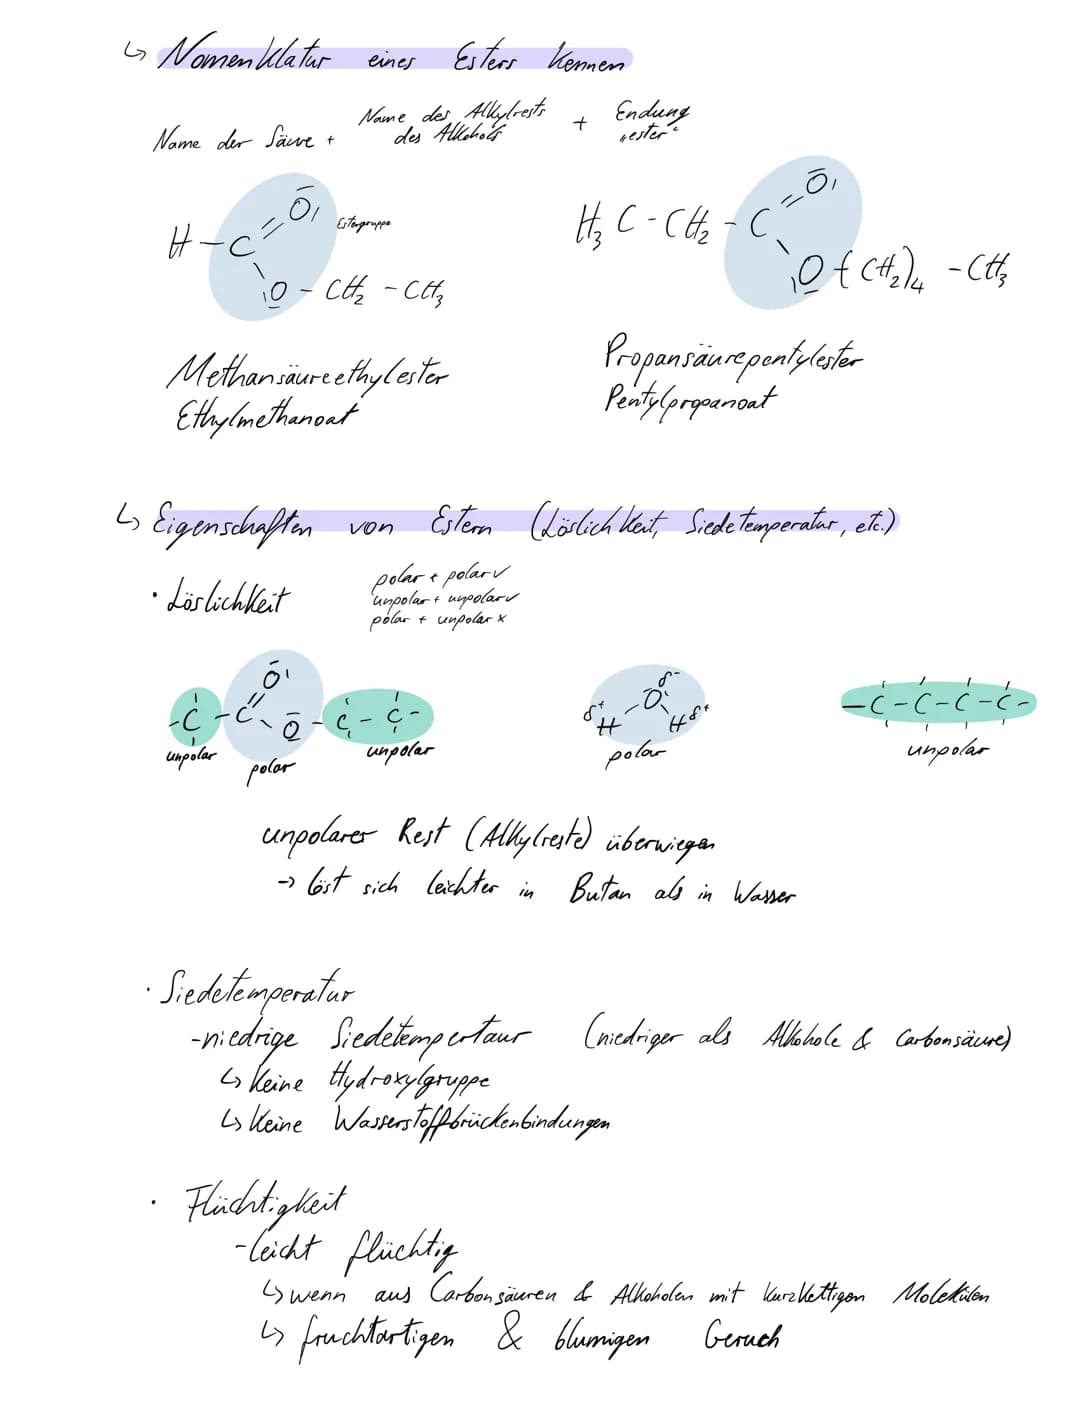 ↳ Nomenklatur eines Esters kennen
Name der Säure + Name des Alkylrests des Alkohols + Endung „ester“
H-C=O Estergruppe
O-CH2-CH3
H3C-CH2-C=O
O-(CH2)4-CH3
Methansäureethylester
Ethylmethanoat
Propansäurepentylester
Pentylpropanoat
↳ Eigenschaften von Estern (Löslichkeit, Siedetemperatur, etc.)
· Löslichkeit
polar + polar ✓
unpolar + unpolar ✓
polar + unpolar x
-C-C=O
O-C-C-
unpolar polar unpolar
δ+ H-O δ- H δ+
polar
-C-C-C-C-
unpolar
unpolarer Rest (Alkylreste) überwiegen
→ löst sich leichter in Butan als in Wasser
· Siedetemperatur
-niedrige Siedetempertaur (niedriger als Alkohole & Carbonsäure)
↳ Keine Hydroxylgruppe
↳ Keine Wasserstoffbrückenbindungen
· Flüchtigkeit
-leicht flüchtig
↳ wenn aus Carbonsäuren & Alkoholen mit kurzkettigen Molekülen
↳ fruchtartigen & blumigen Geruch